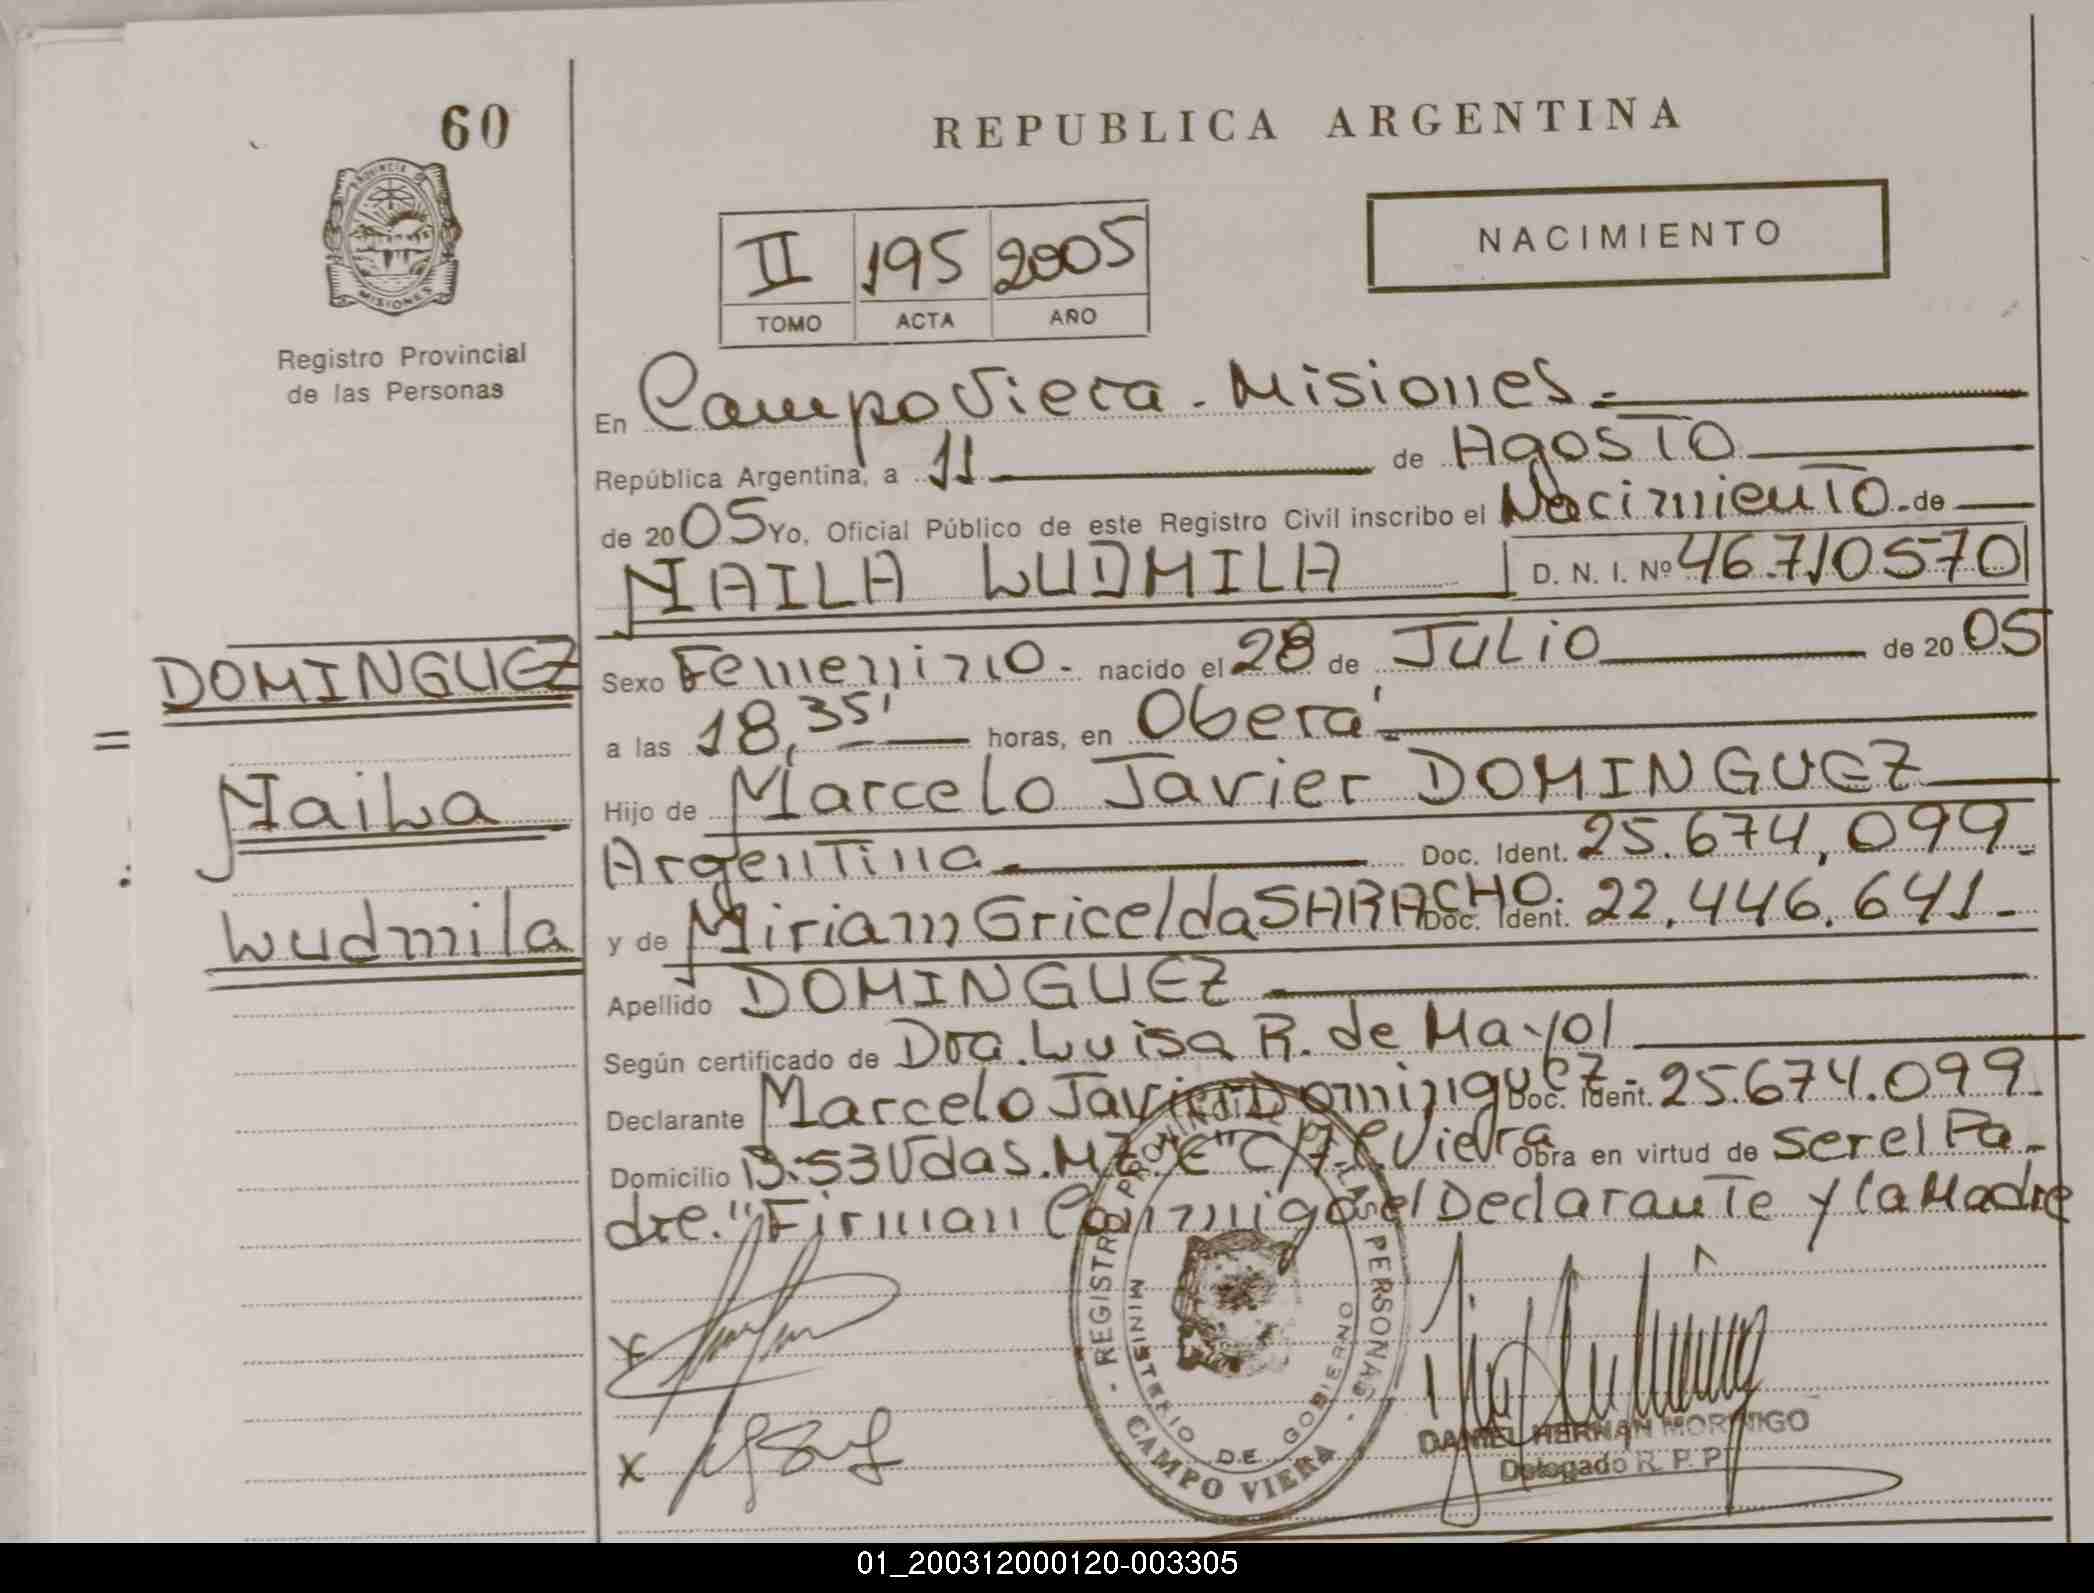 60
PROVINCIA DE
MISIONES
Registro Provincial
de las Personas
REPUBLICA ARGENTINA
NACIMIENTO
II 195 2005
TOMO ACTA AÑO
En Campo Viera - Misiones.-
República Argentina, a 11 de Agosto
de 2005 Yo, Oficial Público de este Registro Civil inscribo el Nacimiento.- de
NAILA LUDMILA D. N. I. Nº 46.710570
DOMINGUEZ
Naila
Ludmila
Sexo Femenino.- nacido el 28 de Julio de 2005
a las 18,35' horas, en Oberá.-
Hijo de Marcelo Javier DOMINGUEZ
Argentina.- Doc. Ident. 25.674,099.-
y de Miriam Gricelda SARACHO. Doc. Ident. 22,446,641.-
Apellido DOMINGUEZ.-
Según certificado de Dra. Luisa R. de Mayol
Declarante Marcelo Javier Dominguez.- Doc. Ident. 25.674.099.-
Domicilio B:53 Vdas. MZ. "E" C/7 C. Viera Obra en virtud de ser el Pa-
dre." Firman Conmigo el Declarante y la Madre
X
X
- REGISTRO PROVINCIAL DE LAS PERSONAS -
MINISTERIO DE GOBIERNO
CAMPO VIERA
DANIEL HERNAN MORINIGO
Delegado R. P. P.
01_200312000120-003305